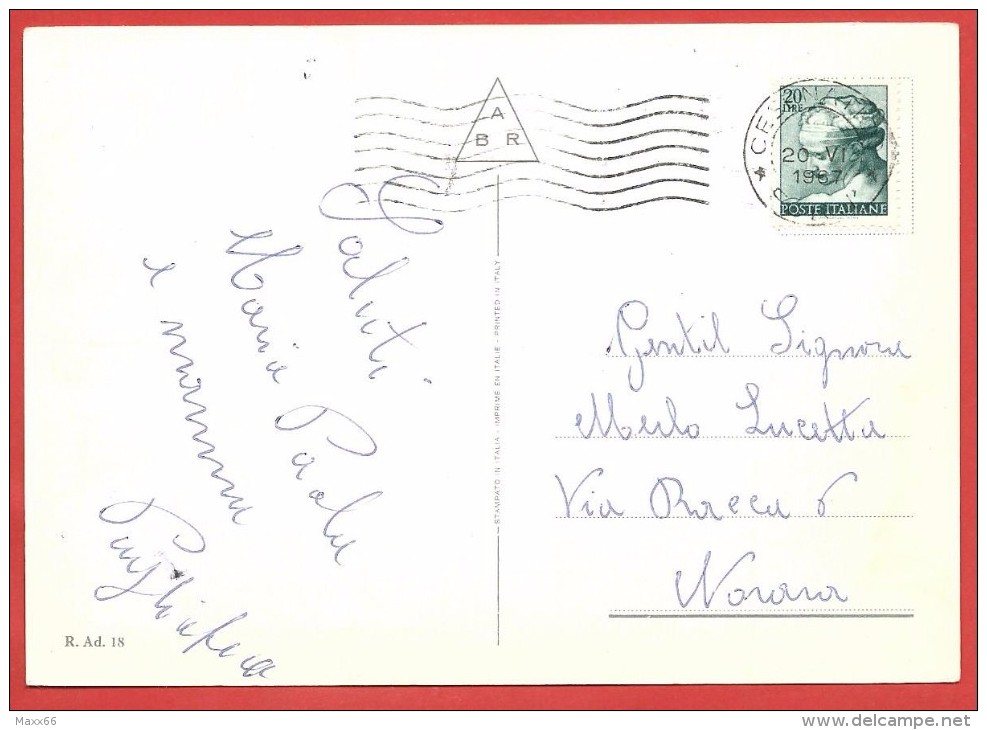 A
B R
20
LIRE
20-VI
1967
POSTE ITALIANE
Saluti
Maria Paola
e mamma
STAMPATO IN ITALIA - IMPRIME EN ITALIE - PRINTED IN ITALY
Gentil Signora
Merlo Lucetta
Via Racca 6
Novara
R. Ad. 18
Maxx66
www.delcampe.net